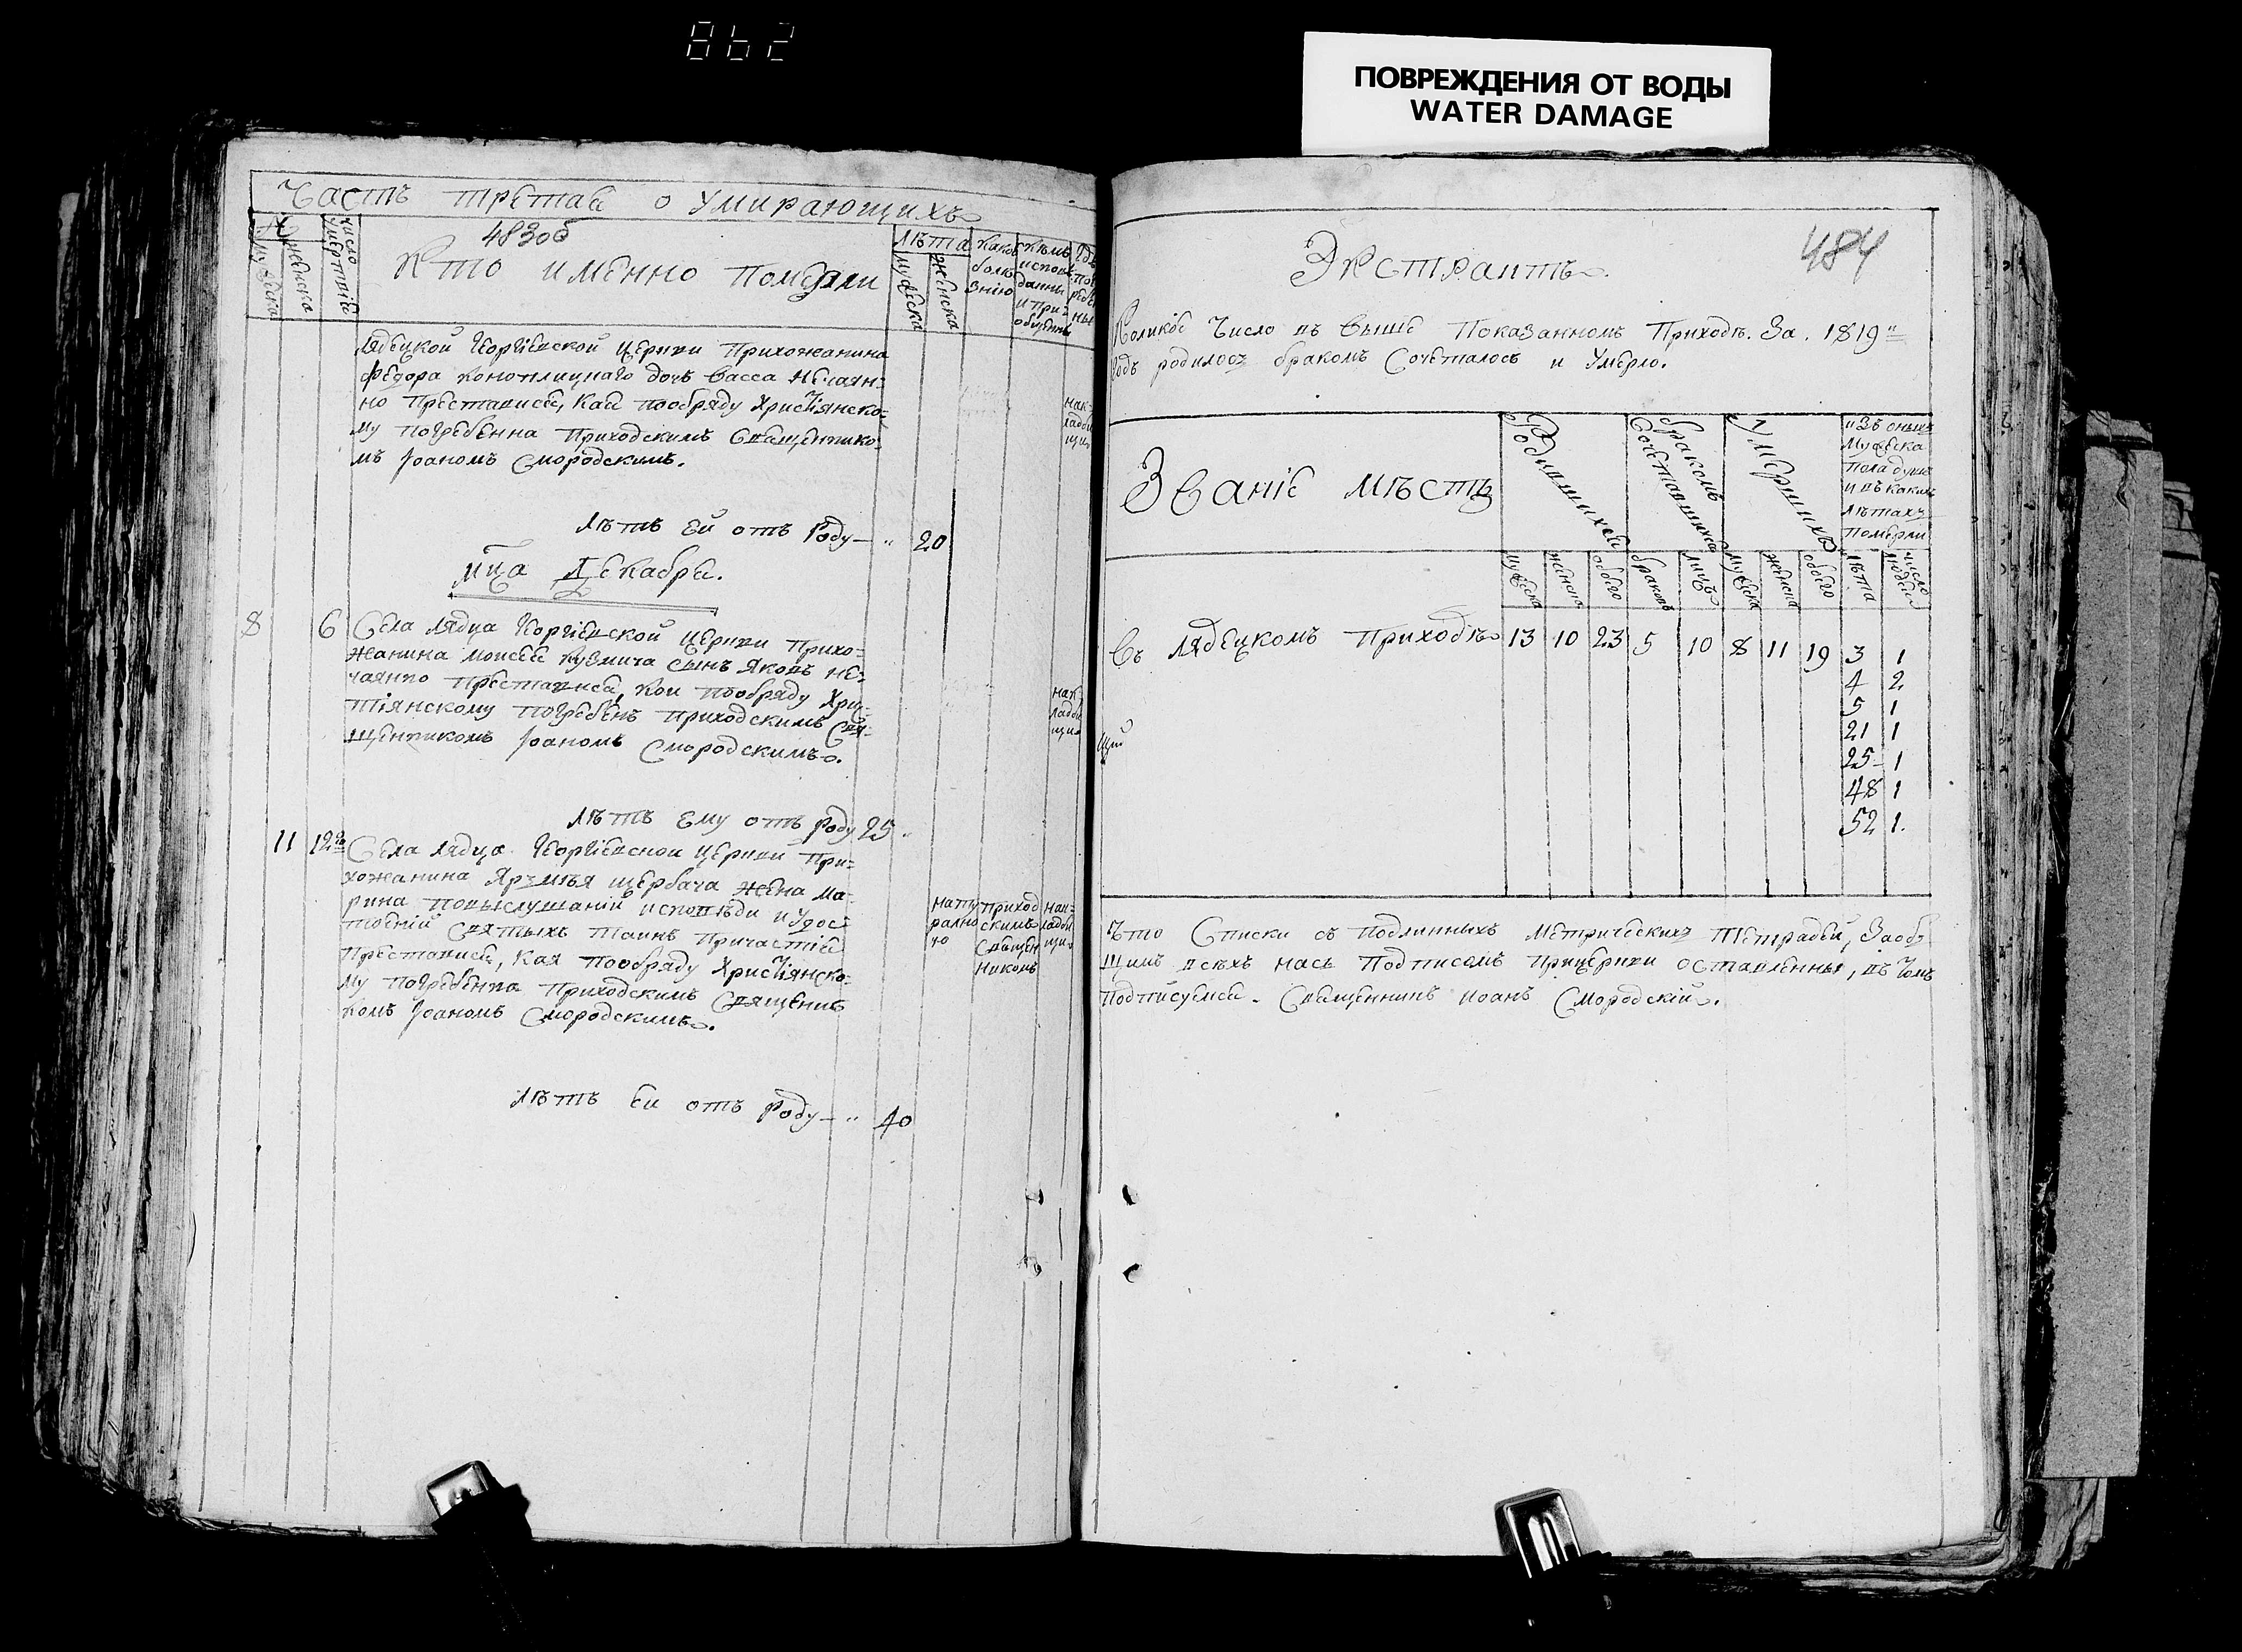 862
ПОВРЕЖДЕНИЯ ОТ ВОДЫ
WATER DAMAGE
Часть третая о Умирающихъ
483об
Мужеска
Женска
Число умертвия
Кто именно Померли
Лѣта
Мужеска
Женска
Какою болезнію
Кѣмъ исповеданы и приобщены
Лядецкой Георгіевской Церкви Прихожанина
Федора Коноплицкаго дочь Васса Нечаян=
но Преставися, Кая пообряду Христіянско=
му погребенна Приходскимъ Священнико=
мъ Іоаномъ Смородскимъ.
нак=
ладби
щи
Лѣтъ Ей отъ Роду — „ 20
Мца Декабря.
8 6 Села Лядца Георгіевской Церкви Прихо=
жанина Моисея Кузмича сынъ Яковъ не=
чаянно Преставися, кои пообряду Хрис=
тіянскому погребенъ приходскимъ Свя=
щенникомъ Іоаномъ Смородскимъ.
нак=
ладби
щи
Лѣтъ Ему отъ роду 25 „
11 12го Села Лядца Георгіевскои Церкви При=
хожанина Ярэмѣя Щербача жена Ма=
рина повыслушаніи исповѣди и Удос=
тоеніи Святыхъ Таинъ Причастія
Преставися, Кая пообряду Христіянско=
му погребенна Приходскимъ Священни
комъ Іоаномъ Смородскимъ.
нату
рално
го
приход
скимъ
Священ
никомъ
нак=
ладби
щи
Лѣтъ Еи отъ Роду — „ 40
484
Экстрактъ
Коликое Число въ Выше Показанномъ Приходѣ. За. 1819й
Годъ родилось бракомъ Сочеталось и Умерло.
Званіе мѣстъ
Родившихся
Бракомъ Сочетавшихся
Умершихъ
изъ оныхъ
Мужеска
пола душъ
и въ какихъ
Лѣтахъ
Померли
Мужеска
женска
обоего
браковъ
лицъ
Мужеска
женска
обоего
лѣта
число людей
Въ Лядецкомъ Приходѣ 13 10 23 5 10 8 11 19 3 1
4 2
5 1
21 1
25 1
48 1
52 1.
щи
Что Списки съ подлинныхъ Метрическихъ Тетрадей, Заоб
щимъ всѣхъ насъ Подписомъ прицеркви оставленны, въ томъ
Подписуемся. Священникъ Иоанъ Смородскій.